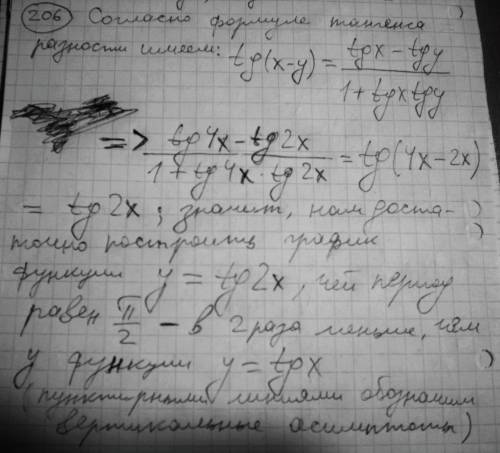 206 Согласно формуле тангенса
разности имеем: tg(x-y) = (tgx - tgy)/(1 + tgx tgy)
=> (tg4x - tg2x)/(1 + tg4x · tg2x) = tg(4x-2x)
= tg2x; значит, нам доста-
точно построить график
функции y = tg2x, чей период
равен π/2 - в 2 раза меньше, чем
у функции y = tgx
(пунктирными линиями обозначим
вертикальные асимптоты)